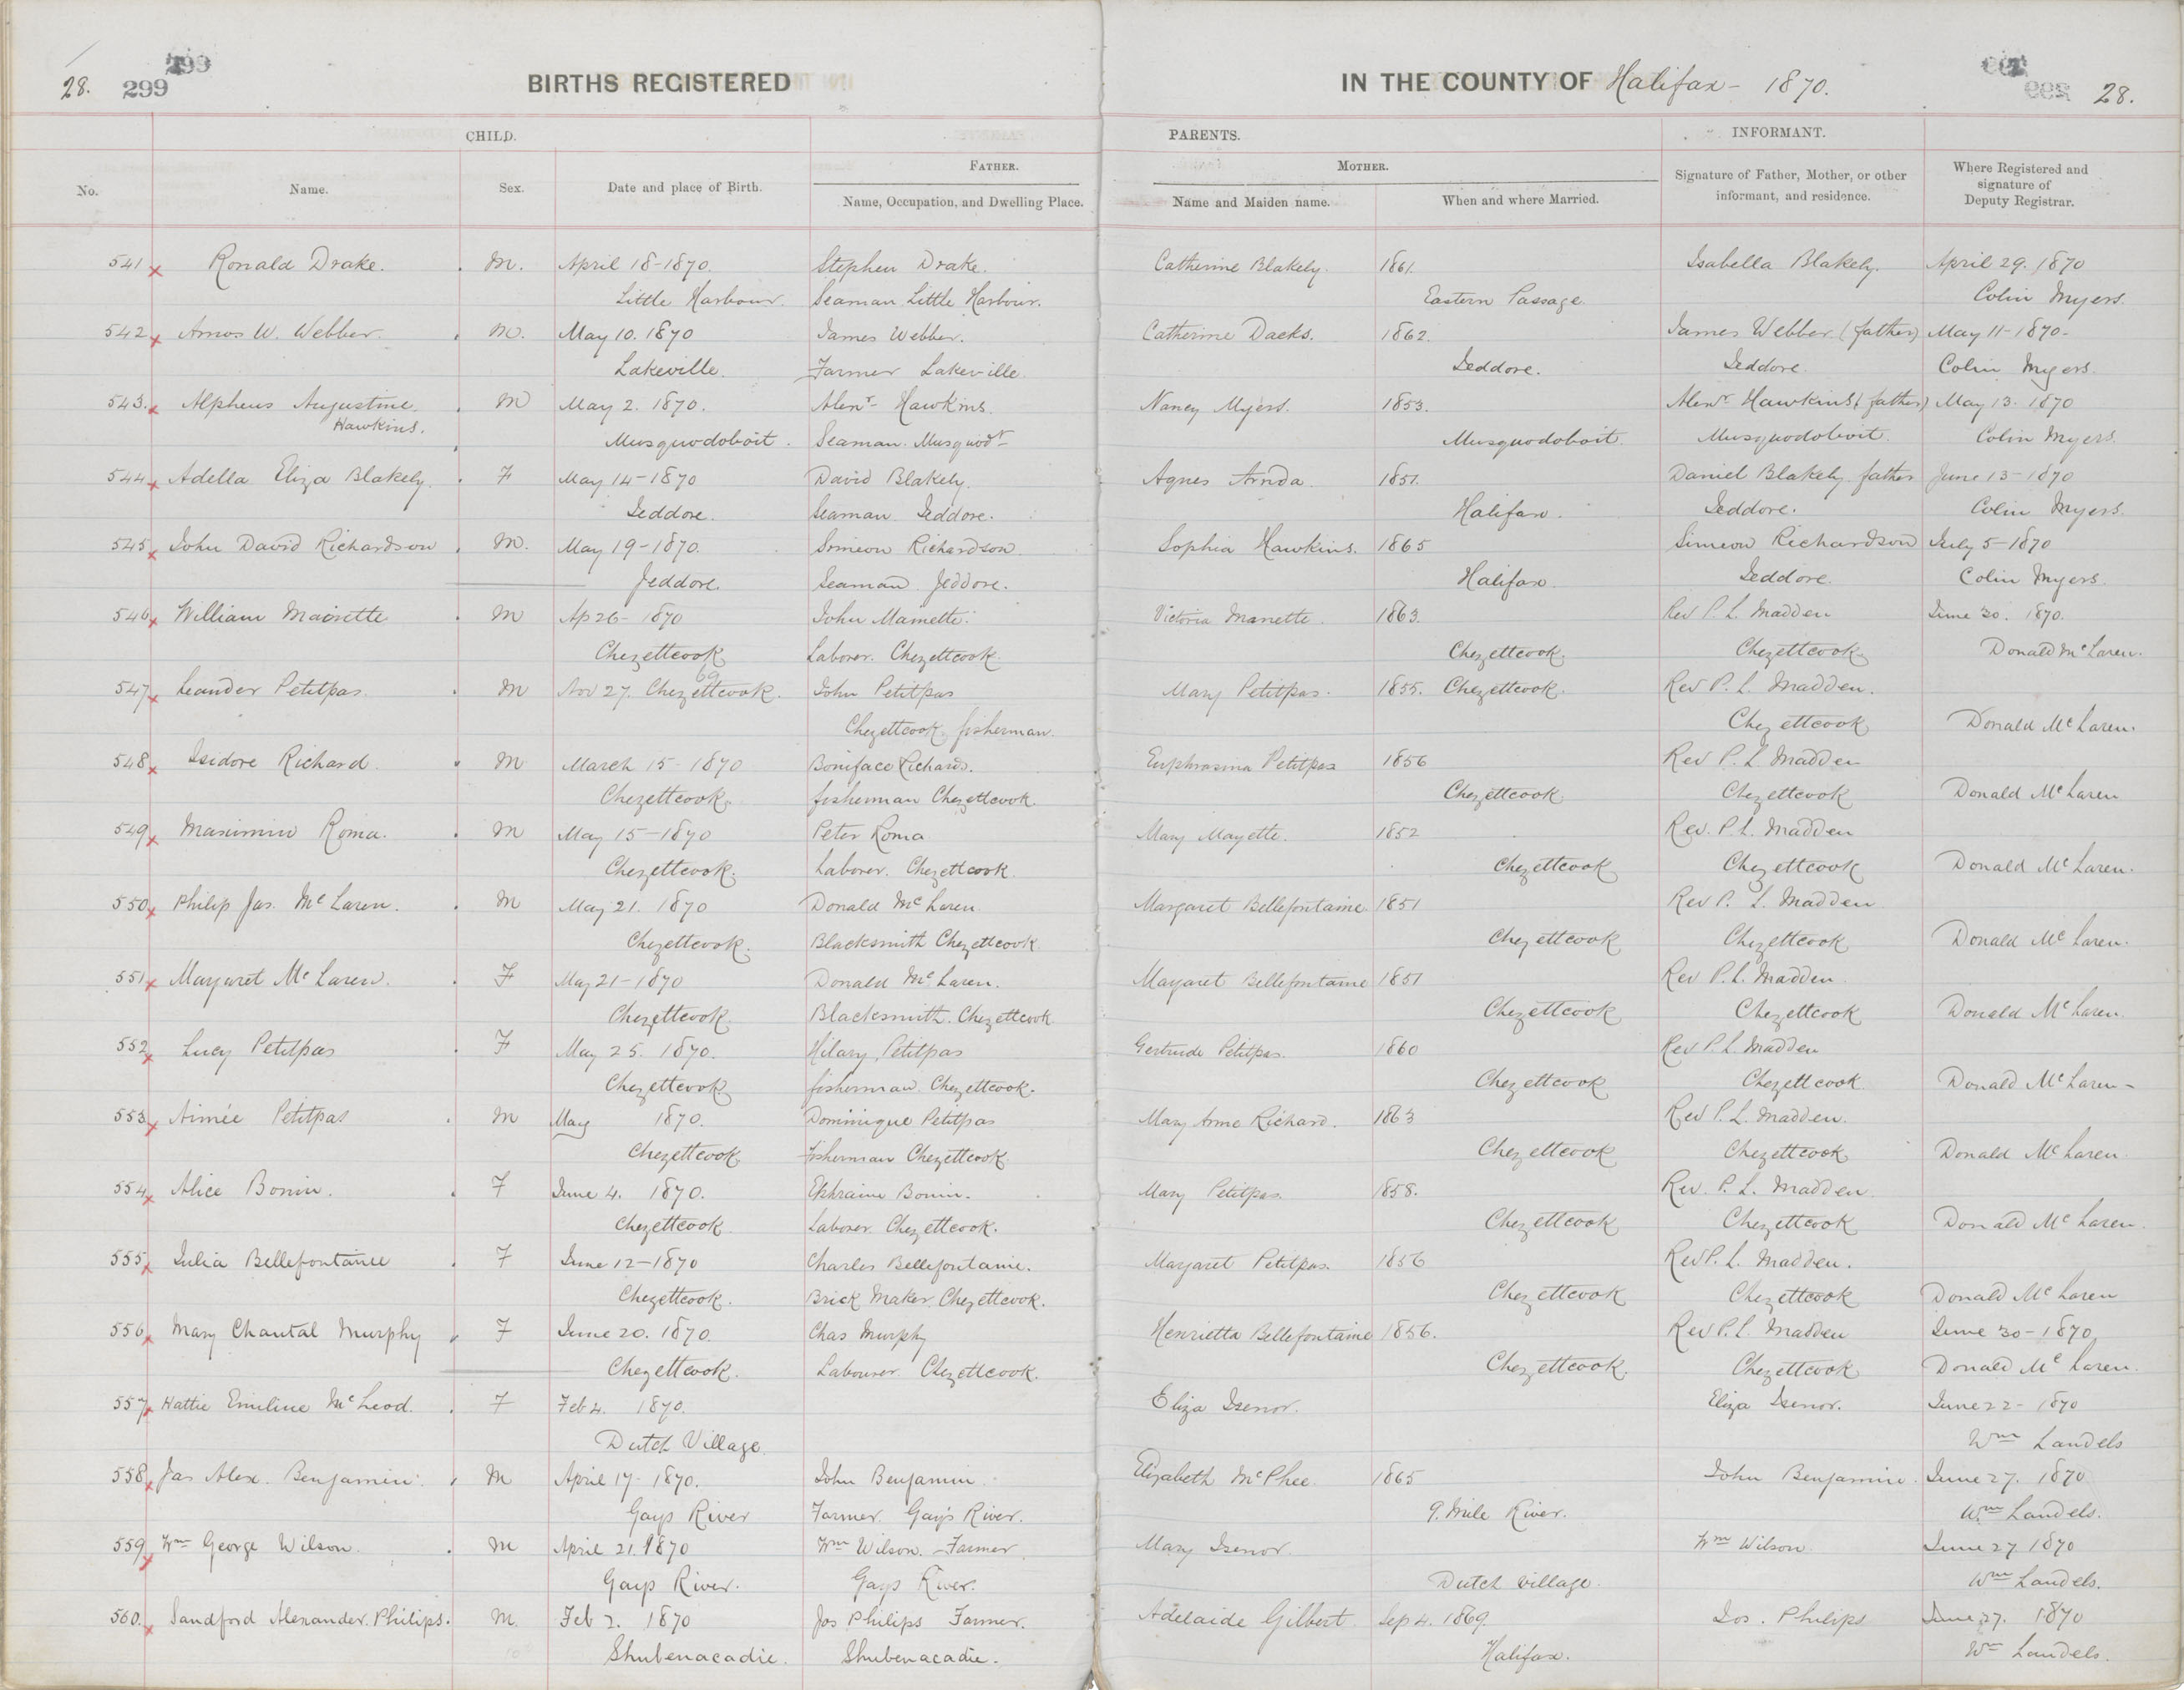 28. 299 299 BIRTHS REGISTERED IN THE COUNTY OF Halifax - 1870. 28.
CHILD. PARENTS. INFORMANT.
No. Name. Sex. Date and place of Birth. FATHER. Name, Occupation, and Dwelling Place. MOTHER. Name and Maiden name. When and where Married. Signature of Father, Mother, or other informant, and residence. Where Registered and signature of Deputy Registrar.
541 Ronald Drake. M. April 18-1870. Stephen Drake. Catherine Blakely. 1861. Isabella Blakely. April 29. 1870
Little Harbour. Seaman Little Harbour. Eastern Passage. Colin Myers.
542 Amos W. Webber. M. May 10. 1870 James Webber. Catherine Dacks. 1862. James Webber (father) May 11-1870-
Lakeville. Farmer Lakeville. Jeddore. Jeddore. Colin Myers.
543. Alpheus Augustine M May 2. 1870. Alexr Hawkins. Nancy Myers. 1853. Alexr Hawkins (father) May 13. 1870
Hawkins. Musquodoboit. Seaman. Musquodt- Musquodoboit. Musquodoboit. Colin Myers.
544 Adella Eliza Blakely. F May 14-1870 David Blakely. Agnes Arnda. 1851. Daniel Blakely father June 13-1870
Jeddore. Seaman Jeddore. Halifax. Jeddore. Colin Myers.
545 John David Richardson M. May 19-1870. Simeon Richardson Sophia Hawkins. 1865 Simeon Richardson July 5-1870
Jeddore. Seaman Jeddore. Halifax. Jeddore. Colin Myers.
546 William M Ap 26-1870 John Victoria 1863. Rev P. L. Madden June 30. 1870.
Chezettcook Laborer. Chezettcook. Chezettcook. Chezettcook. Donald McLaren.
547 Leander Petitpas. M Nov 27. 69 Chezettcook. John Petitpas Mary Petitpas. 1855. Chezettcook. Rev P. L. Madden.
Chezettcook fisherman. Chezettcook Donald McLaren.
548 Isidore Richard. M March 15-1870 Boniface Richard. Euphrasina Petitpas 1856 Rev P. L. Madden
Chezettcook. fisherman Chezettcook. Chezettcook Chezettcook Donald McLaren
549 Maximin Roma. M May 15-1870 Peter Roma Mary Mayette. 1852 Rev. P. L. Madden
Chezettcook. Laborer. Chezettcook Chezettcook Chezettcook Donald McLaren.
550 Philip Jas. McLaren. M May 21. 1870 Donald McLaren Margaret Bellefontaine 1851 Rev P. L. Madden
Chezettcook. Blacksmith Chezettcook Chezettcook Chezettcook Donald McLaren.
551 Margaret McLaren. F May 21-1870 Donald McLaren. Margaret Bellefontaine 1851 Rev P. L. Madden
Chezettcook. Blacksmith. Chezettcook Chezettcook Chezettcook Donald McLaren.
552 Lucy Petitpas F May 25. 1870. Hilary Petitpas Gertrude Petitpas. 1860 Rev P. L. Madden
Chezettcook fisherman. Chezettcook. Chezettcook Chezettcook Donald McLaren-
553 Aimée Petitpas M May 1870. Dominique Petitpas Mary Anne Richard. 1863 Rev P. L. Madden.
Chezettcook Fisherman Chezettcook. Chezettcook Chezettcook Donald McLaren.
554 Alice Bonin. F June 4. 1870. Ephraim Bonin. Mary Petitpas. 1858. Rev. P. L. Madden
Chezettcook. Laborer Chezettcook. Chezettcook Chezettcook Donald McLaren.
555 Julia Bellefontaine F June 12-1870 Charles Bellefontaine. Margaret Petitpas. 1856 Rev P. L. Madden.
Chezettcook. Brick Maker Chezettcook. Chezettcook Chezettcook Donald McLaren
556 Mary Chantal Murphy F June 20. 1870. Chas Murphy Henrietta Bellefontaine 1856. Rev P. L. Madden June 30-1870
Chezettcook. Labourer Chezettcook. Chezettcook. Chezettcook Donald McLaren.
557 Hattie Emiline McLeod. F Feb 4. 1870. Eliza Isenor. Eliza Isenor. June 22-1870
Dutch Village. Wm Landels
558 Jas Alex. Benjamin. M April 17-1870. John Benjamin Elizabeth McPhee. 1865 John Benjamin. June 27. 1870
Gays River Farmer. Gay's River. 9 Mile River. Wm Landels.
559 Wm George Wilson. M April 21. 1870 Wm Wilson. - Farmer Mary Isenor. Wm Wilson. June 27 1870
Gays River. Gays River. Dutch village. Wm Landels.
560. Sandford Alexander Philips. M. Feb 2. 1870 Jos Philips Farmer. Adelaide Gilbert Sep 4. 1869. Jos. Philips June 27. 1870
Shubenacadie. Shubenacadie. Halifax. Wm Landels.